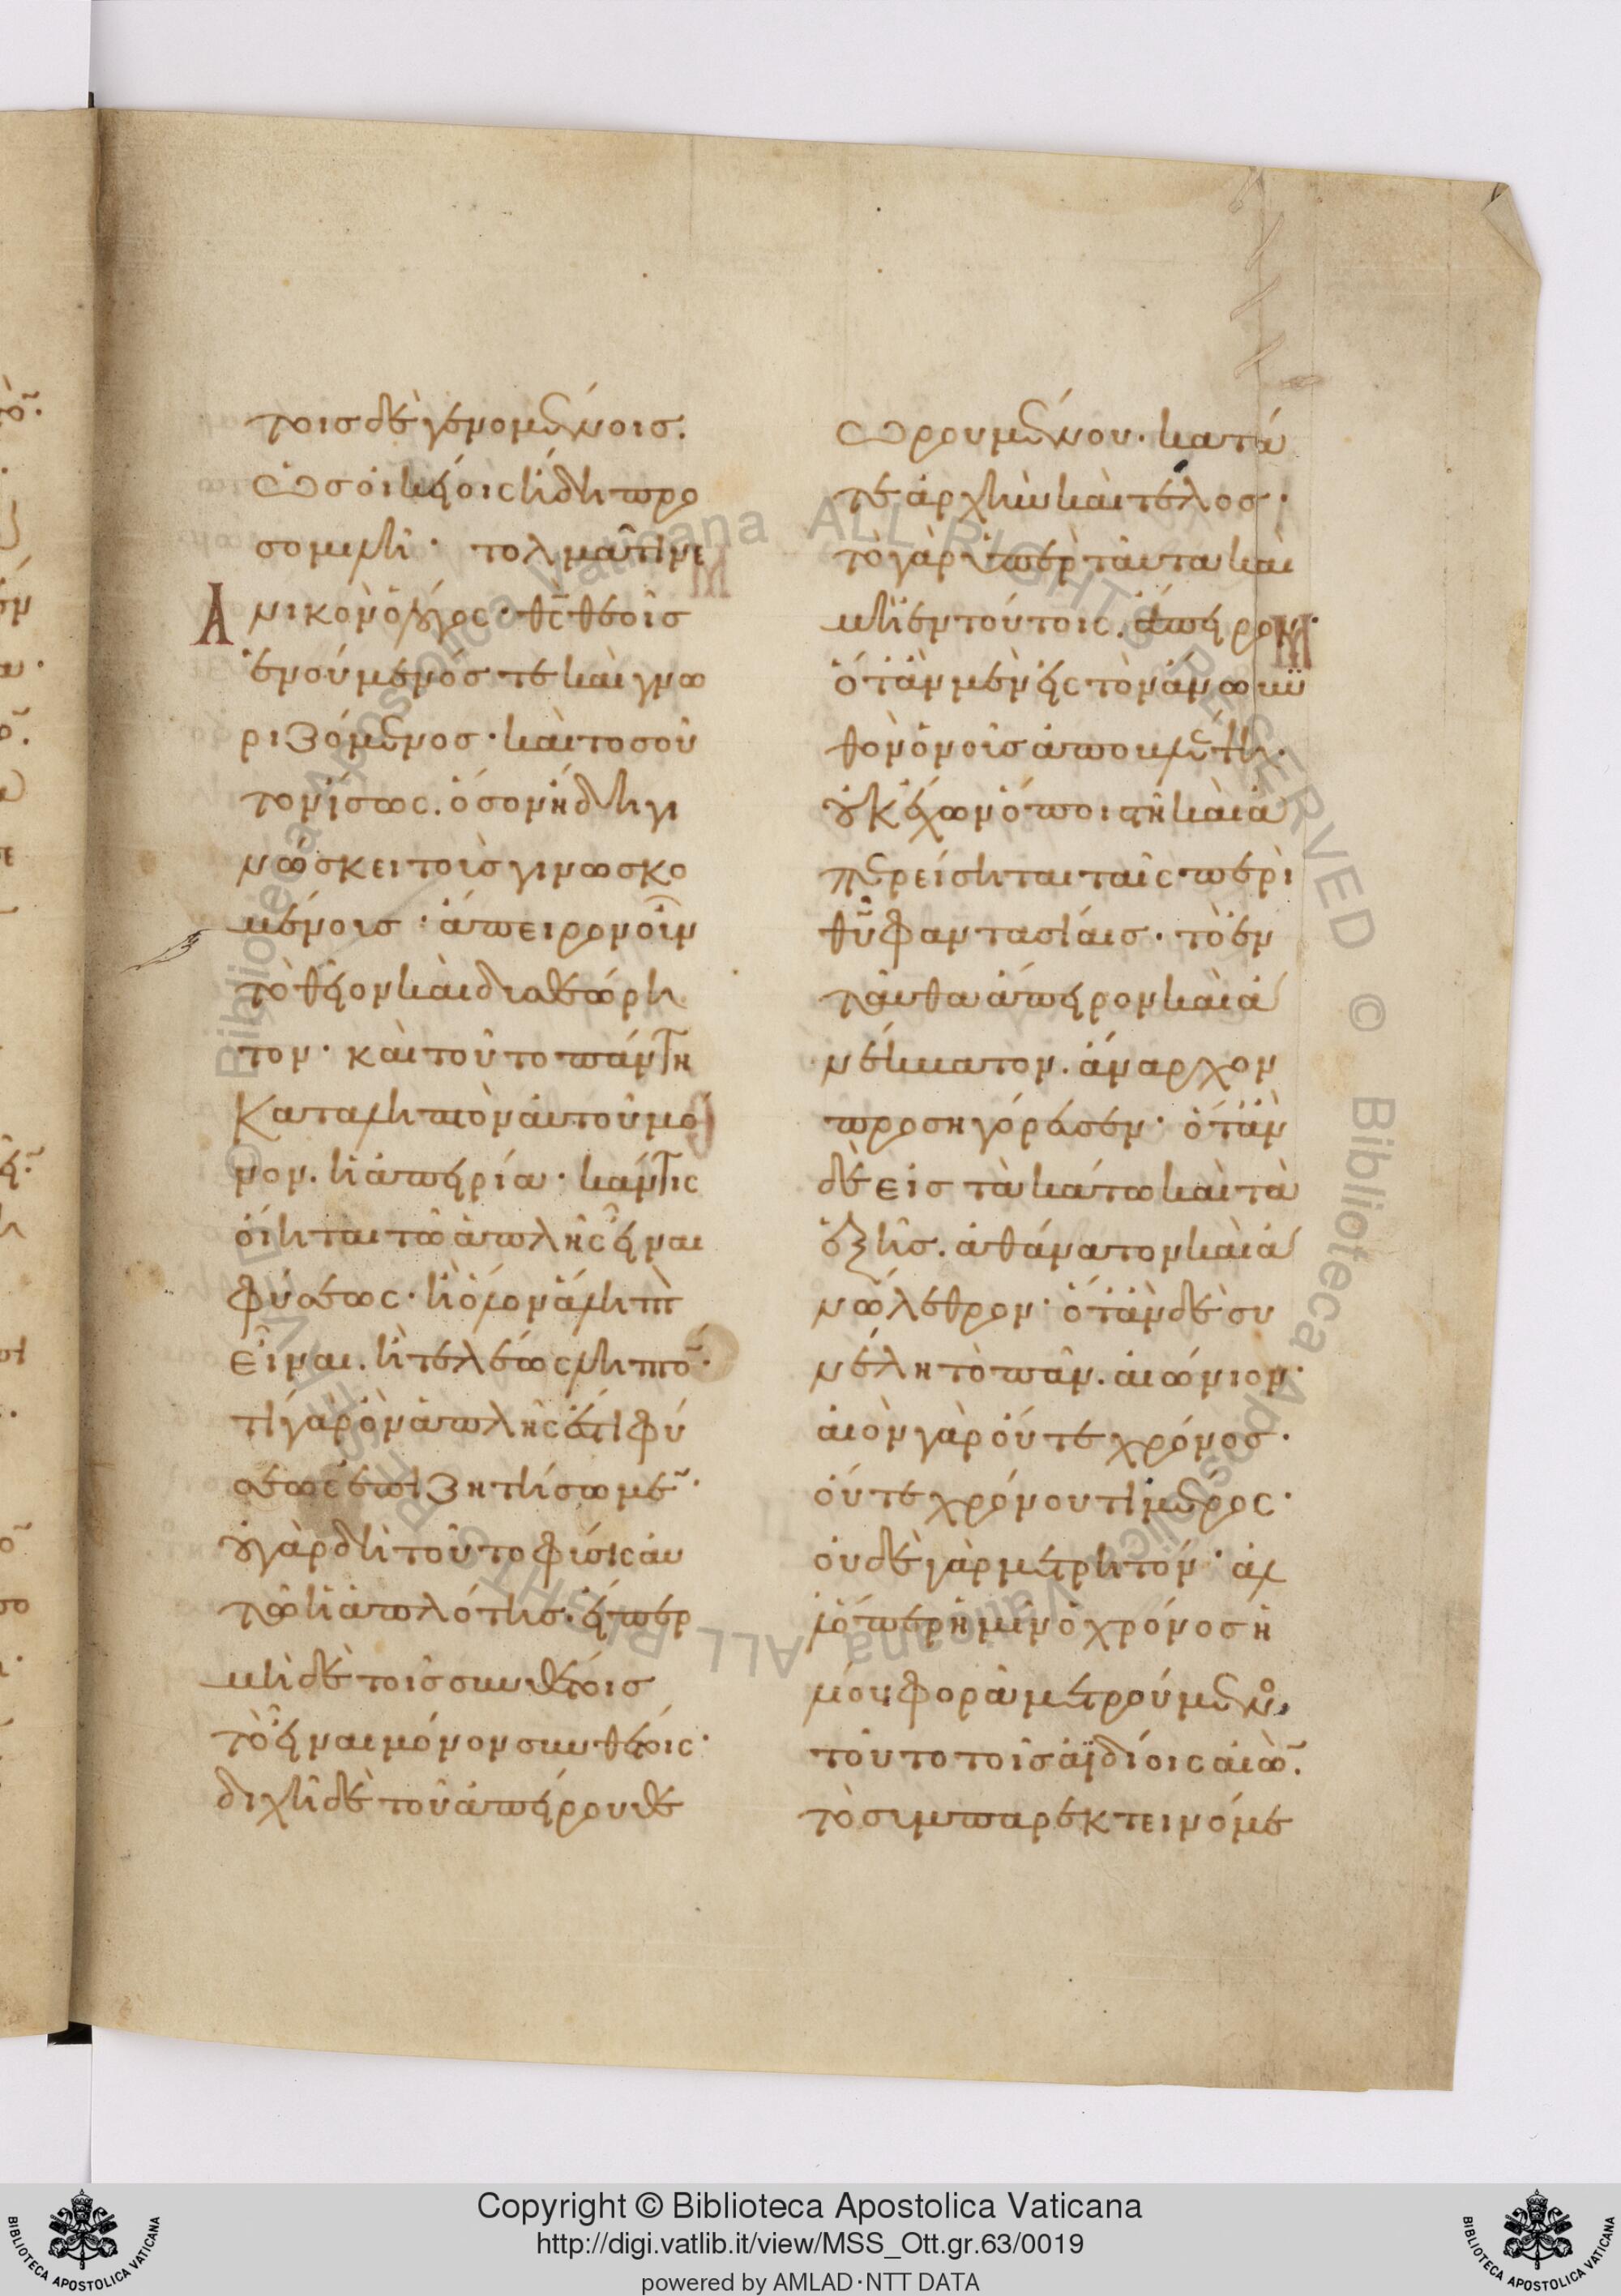 τοις δὲ γενομένοις.
ὡς οἰκείοις ἤδη προ
σομιλῆ· τολμᾶ τι νε
ανικὸν ὁ λόγος· θς θεοῖς
ἑνούμενός τε καὶ γνω
ριζόμενος· καὶ τοσοῦ
τον ἴσως. ὅσον ἤδη γι
νώσκει τοὺς γινωσκο
μένους· ἄπειρον οὖν
τὸ θεῖον καὶ δυσθεώρη
τον· καὶ τοῦτο πάντη
καταληπτὸν αὐτοῦ μό
νον. ἡ ἀπειρία· κἄν τις
οἴηται τῶ ἁπλῆς εἶναι
φύσεως· ἢ ὅλον ἄληπτ
εἶναι. ἢ τελέως ληπτό·
τί γὰρ ὃν ἁπλῆς ἐστὶ φύ
σεως ἐπιζητήσωμε·
οὐ γὰρ δὴ τοῦτο φύσις αὐ
τῶ ἡ ἁπλότης. εἴπερ
μὴ δὲ τοῖς συνθέτοις
τὸ εἶναι μόνον συνθέτοις·
διχῆ δὲ τοῦ ἀπείρου θε
ωρουμένου· κατά
τε ἀρχὴν καὶ τέλος·
τὸ γὰρ ὑπὲρ ταῦτα καὶ
μὴ ἐν τούτοις. ἄπειρον·
ὅταν μὲν εἰς τὸν ἄνω βυ
θὸν ὁ νοῦς ἀποβλέψη·
οὐκ ἔχων ὅποι στῆ καὶ ἀ
περείσηται ταῖς περὶ
θῦ φαντασίαις· τὸ ἐν
ταῦθα ἄπειρον καὶ ἀ
νέκβατον. ἄναρχον
προσηγόρευσεν· ὅταν
δὲ εἰς τὰ κάτω καὶ τὰ
ἑξῆς. ἀθάνατον καὶ ἀ
νώλεθρον· ὅταν δὲ συ
νέλη τὸ πᾶν. αἰώνιον·
αἰὼν γὰρ οὔτε χρόνος·
οὔτε χρόνου τι μέρος·
οὐδὲ γὰρ μετρητόν· ἀλ
λ' ὅπερ ἡμῖν ὁ χρόνος ἡ
λίου φορᾶ μετρούμενο,
τοῦτο τοῖς ἀϊδίοις αἰὼ.
τὸ συμπαρεκτεινόμε
Copyright © Biblioteca Apostolica Vaticana
http://digi.vatlib.it/view/MSS_Ott.gr.63/0019
powered by AMLAD·NTT DATA